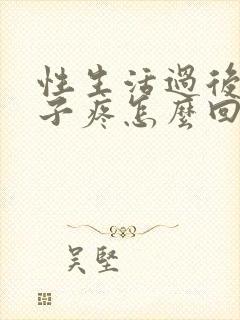 性生活過後
子疼怎麼回
吴堅